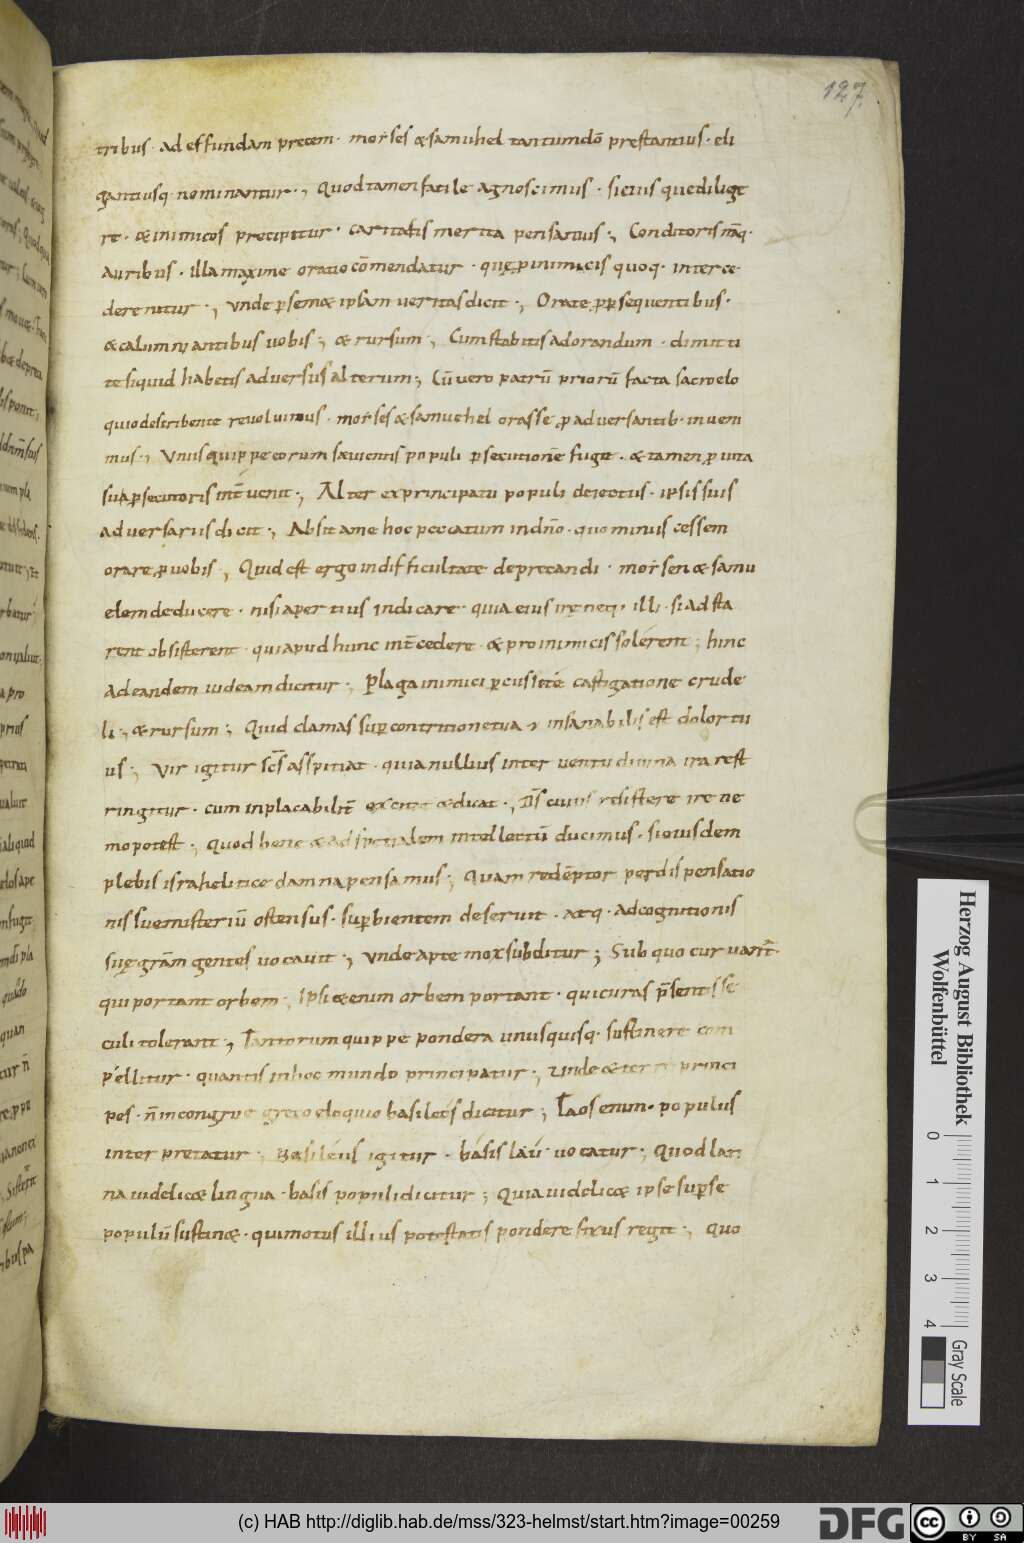 127
tribus · ad effundam precem · moẏses & samuhel tantumdō prestantius · eli
gantiusq· nominantur ·, Quod tamen facile agnoscimus · si cius que dilige
re · & inimicos precipitur · caritatis merita pensamus ·, Conditoris nāq·
auribus · illa maxime oratio cōmendatur · que p inimicis quoq· interce
dere nitur ·, unde p sem& ipsam ueritas dicit ·, Orate p psequentibus ·
& calumniantibus uobis ·, & rursum ·, Cum stabitis ad orandum · dimitti
te siquid habetis aduersus alterum ·, Cū uero patrū priorū facta sacro elo
quio describente reuoluimus · moẏses & samuehel orasse p aduersantib· inueni
mus ·, Unus quippe eorum seuientis populi psecutionē fugit · & tamen p uita
sui psecutoris int̄uenit ·, Alter ex principatu populi deiectus · ipsis suis
aduersariis dicit ·, Absit a me hoc peccatum in dn̄o · quominus cessem
orare p uobis ·, Quid est ergo in difficultate deprecandi · moẏsen & samu
elem deducere · nisi apertius indicare · quia eius ire nec · illi · si adsta
rent obsisterent · qui apud hunc int̄cedere · & pro inimicis solerent ; hinc
ad eandem iudeam dicitur ·, Plaga inimici pcussi te castigatione crude
li ·, & rursum ·, Quid clamas sup contritione tua · insanabilis est dolor tu
us ·, Vir igitur sc̄s asspitiat · quia nullius interuentu diuina ira rest
ringitur · cum inplacabilit̄ · ,
mo potest ·, Quod bene intellectū ducimus · si eiusdem
plebis israhelitice damna pensamus ·, Quam redēptor per dispensatio
nis sue misteriū ostensus · supbientem deseruit · atq· ad cognitionis
sue grām gentes uocauit ·, unde apte mox subditur ; Sub quo curuant̄ ·
qui portant orbem · Ipsi & enim orbem portant · qui curas p̄sentis se
culi tolerant ·, Tantorum quippe pondera unusquisq· sustinere com
pellitur · quantis in hoc mundo principatur ·, Unde & terre princi
pes · n̄ incongrue greco eloquio basileis dicitur ; Laos enim · populus
interpretatur ·, Basileus igitur · basis laū · uocatur ·, Quod lati
na uidelic& lingua · basis populi dicitur ; Quia uidelic& ipse sup se
populū sustin& · qui motus illius potestatis pondere fixus regit ·, Quo
Herzog August Bibliothek
Wolfenbüttel
0 1 2 3 4
Gray Scale
(c) HAB http://diglib.hab.de/mss/323-helmst/start.htm?image=00259
DFG
cc BY SA